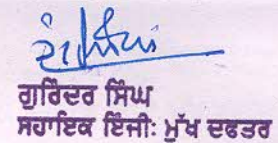 ਗੁਰਿੰਦਰ ਸਿੰਘ
ਸਹਾਇਕ ਇੰਜੀ: ਮੁੱਖ ਦਫਤਰ